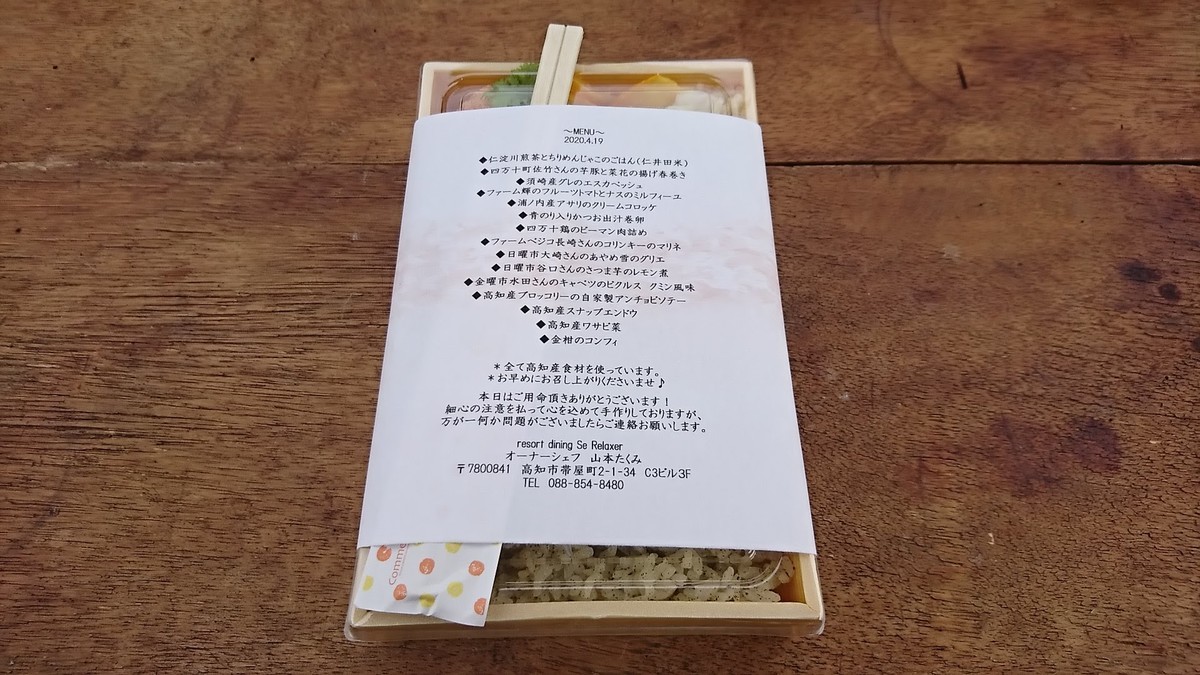 ～MENU～
2020.4.19
◆仁淀川煎茶とちりめんじゃこのごはん(仁井田米)
◆四万十町佐竹さんの芋豚と菜花の揚げ春巻き
◆須崎産グレのエスカベッシュ
◆ファーム輝のフルーツトマトとナスのミルフィーユ
◆浦ノ内産アサリのクリームコロッケ
◆青のり入りかつお出汁巻卵
◆四万十鶏のピーマン肉詰め
◆ファームベジコ長崎さんのコリンキーのマリネ
◆日曜市大崎さんのあやめ雪のグリエ
◆日曜市谷口さんのさつま芋のレモン煮
◆金曜市水田さんのキャベツのピクルス クミン風味
◆高知産ブロッコリーの自家製アンチョビソテー
◆高知産スナップエンドウ
◆高知産ワサビ菜
◆金柑のコンフィ
＊全て高知産食材を使っています。
＊お早めにお召し上がりくださいませ♪
本日はご用命頂きありがとうございます！
細心の注意を払って心を込めて手作りしておりますが、
万が一何か問題がございましたらご連絡お願いします。
resort dining Se Relaxer
オーナーシェフ 山本たくみ
〒7800841 高知市帯屋町2-1-34 C3ビル3F
TEL 088-854-8480